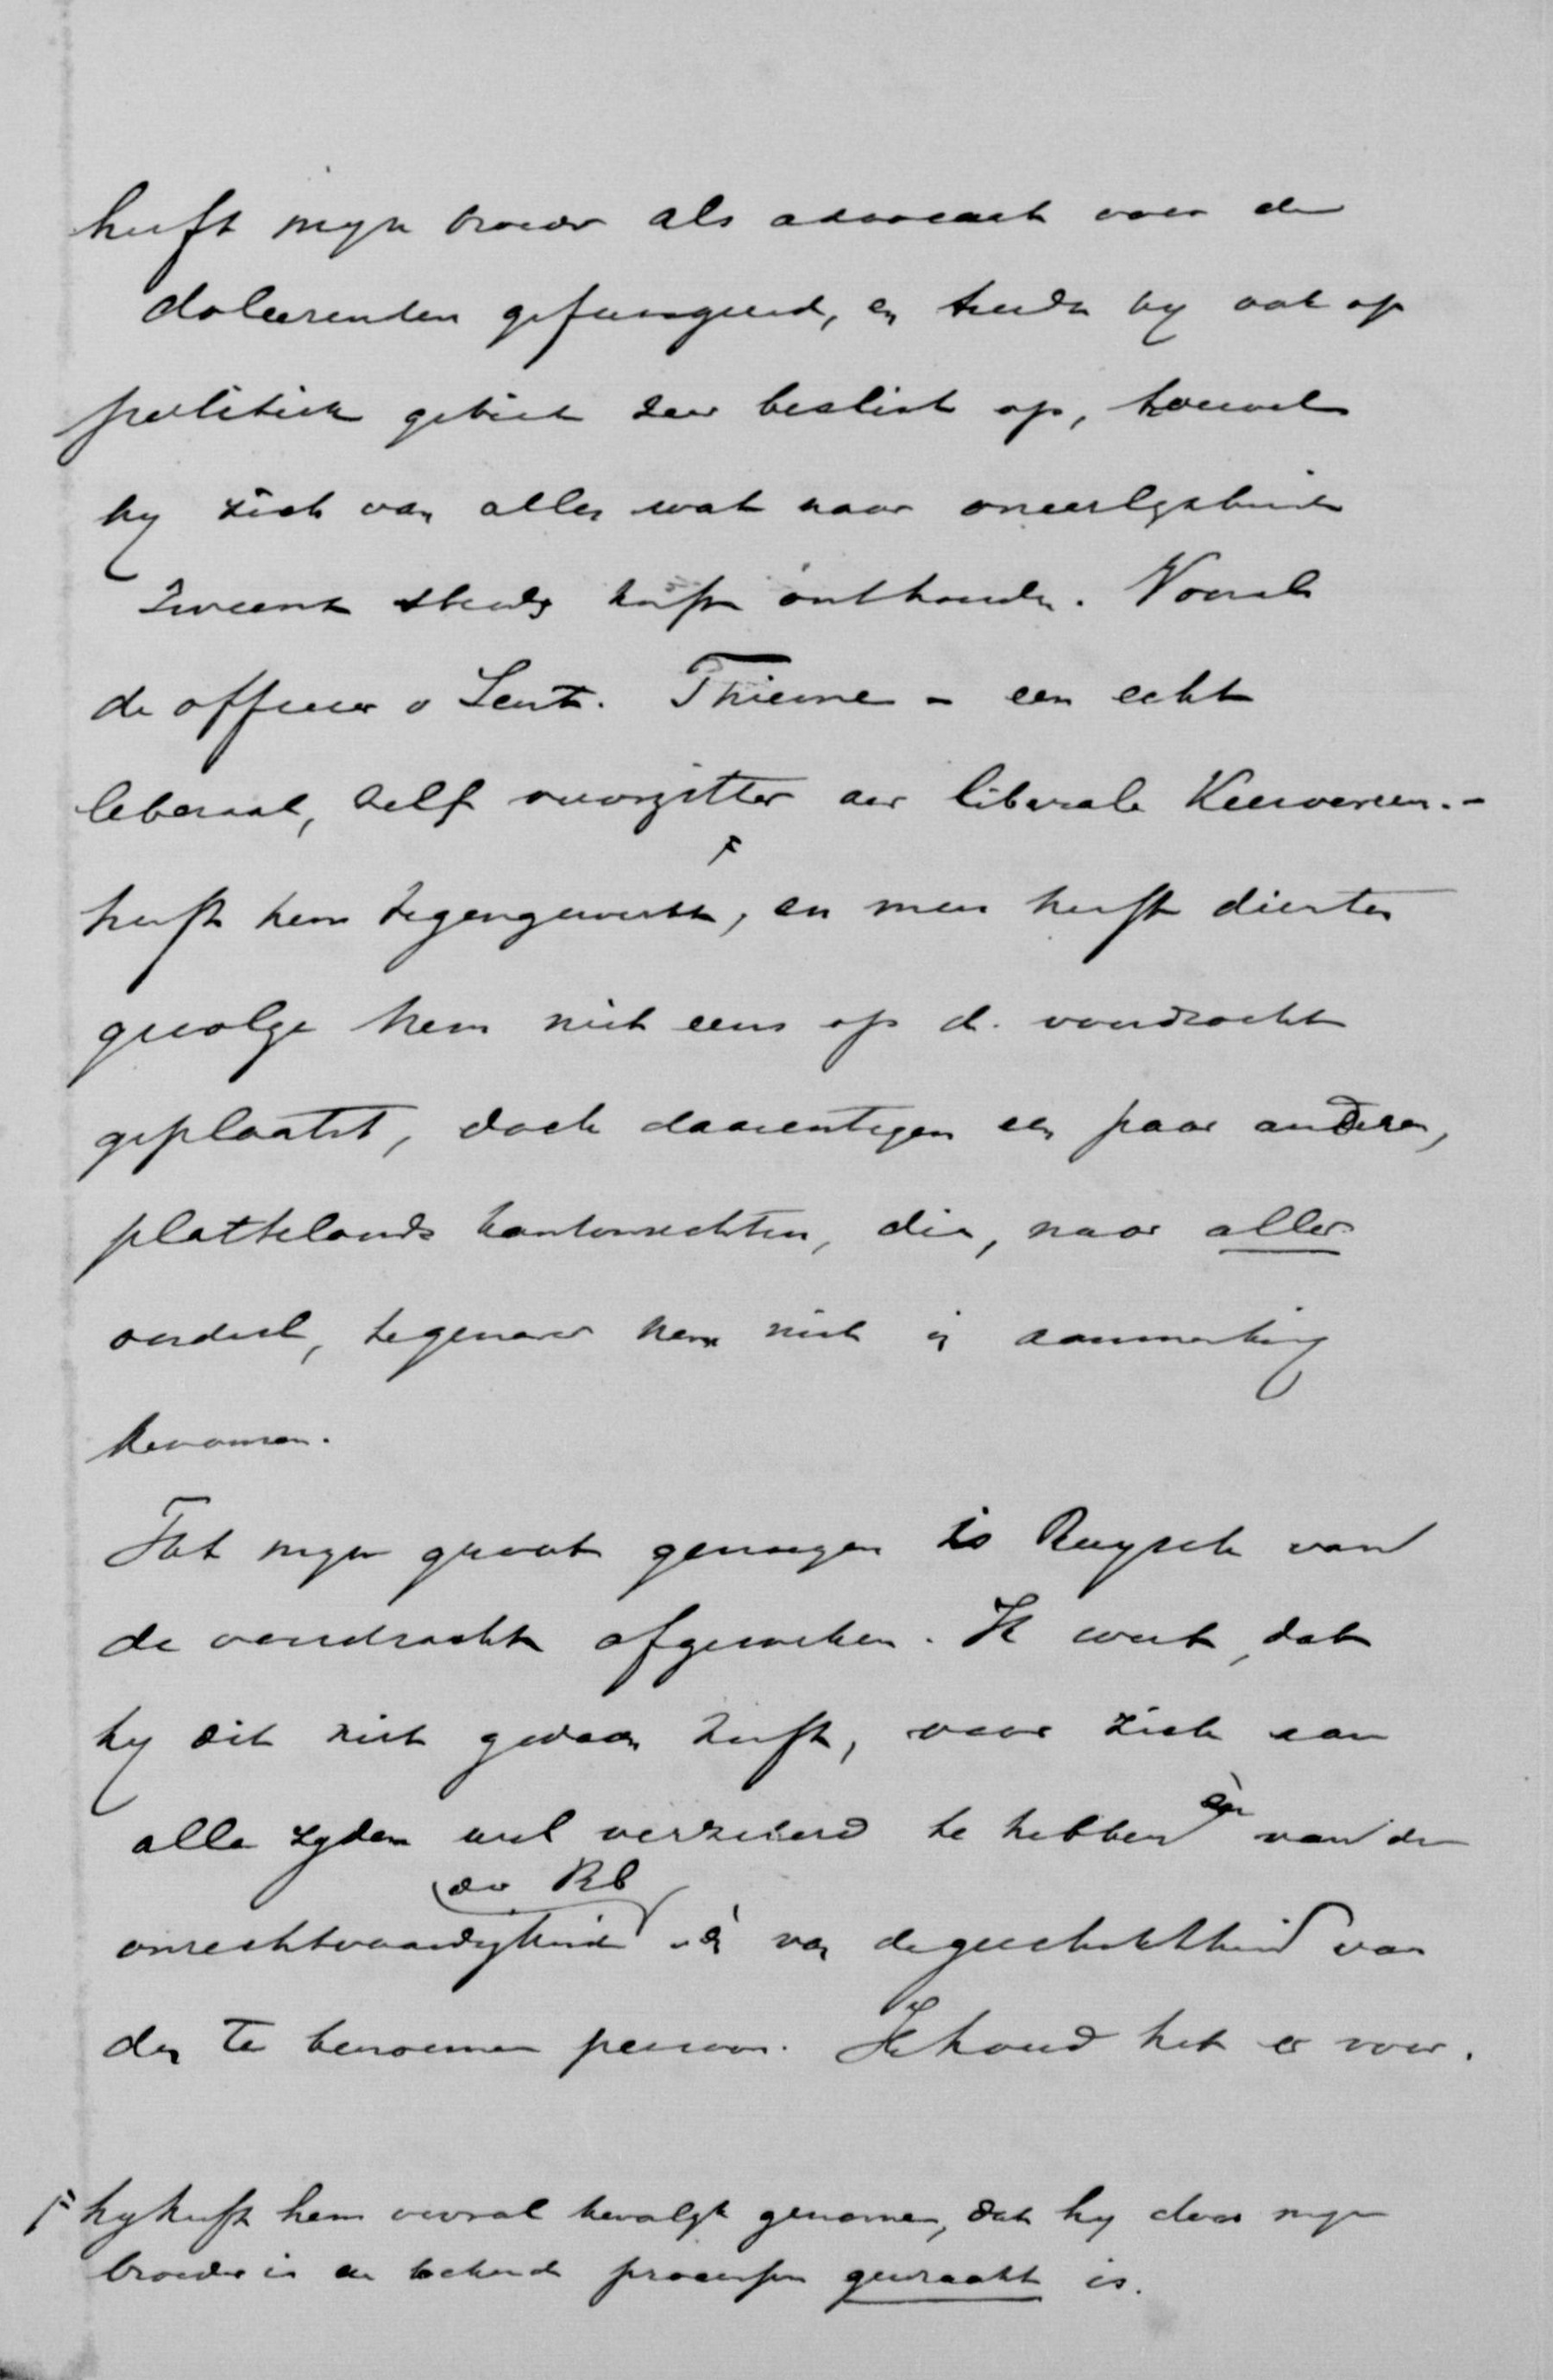 heeft mijn broeder als advocaat voor de
doleerenden gefungeerd, en treedt hij ook op
politiek gebied zeer beslist op, hoewel
hij zich van alles wat naar oneerlijkheid
zweemt steeds heeft onthouden. Vooral
de officier v Justt. Thieme - een echt
liberaal, zelf voorzitter der liberale Kiesvereen. -
F
heeft hem tegengewerkt, en men heeft dientten
gevolge hem niet eens op de voordracht
geplaatst, doch daarentegen een paar anderen,
plattelands kantonrechters, die, naar aller
oordeel, tegenover hem niet in aanmerking
komen.
Tot mijn groot genoegen is Ruysch van
de voordracht afgeweken. Ik weet, dat
hij dit niet gedaan heeft, voor zich aan
alle zijden wel verzekerd te hebben èn van de
onrechtvaardigheid der Rb èn van de geschiktheid van
den te benoemen persoon. Ik houd het er voor.
F hij heeft hem vooral kwalijk genomen, dat hij door mijn
broeder in de bekende processen gewraakt is.